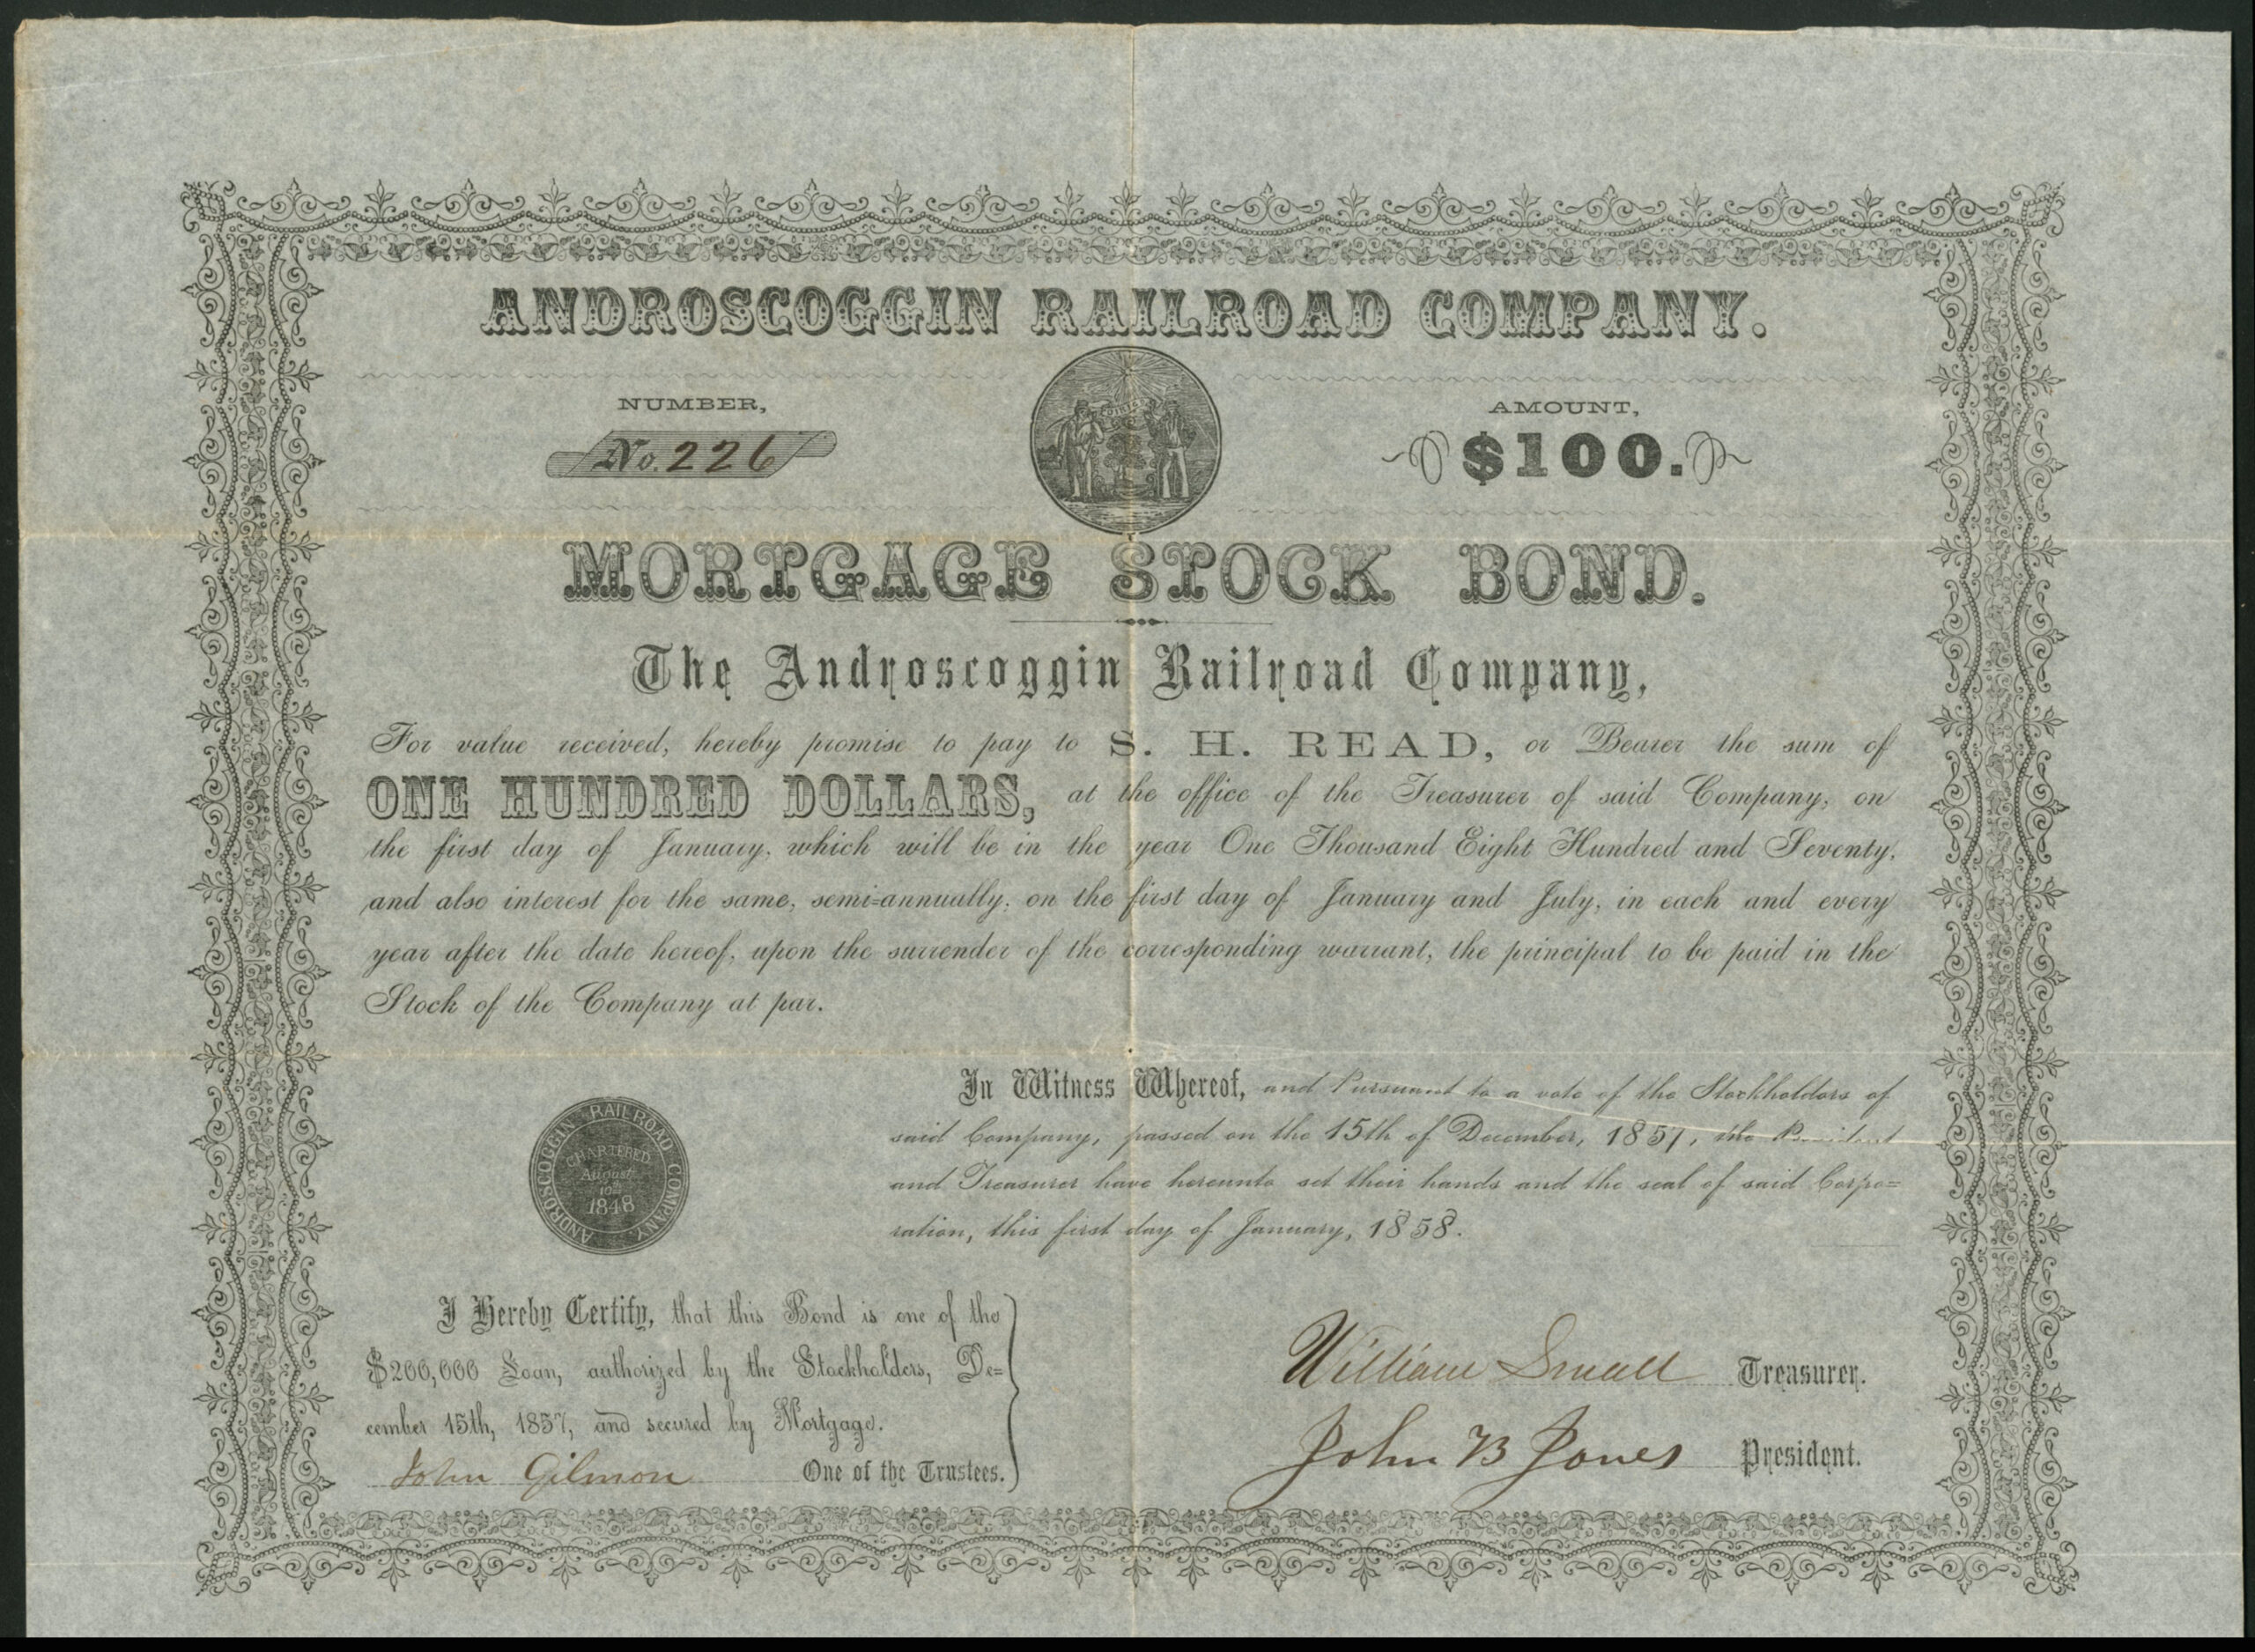 ANDROSCOGGIN RAILROAD COMPANY.
NUMBER,
No. 226
DIRIGO
AMOUNT,
$100.
MORTGAGE STOCK BOND.
The Androscoggin Railroad Company,
For value received, hereby promise to pay to S. H. READ, or Bearer the sum of
ONE HUNDRED DOLLARS, at the office of the Treasurer of said Company, on
the first day of January, which will be in the year One Thousand Eight Hundred and Seventy,
and also interest for the same, semi-annually, on the first day of January and July, in each and every
year after the date hereof, upon the surrender of the corresponding warrant, the principal to be paid in the
Stock of the Company at par.
In Witness Whereof, and Pursuant to a vote of the Stockholders of
said Company, passed on the 15th of December, 1857, the President
and Treasurer have hereunto set their hands and the seal of said Corpo=
ration, this first day of January, 1858.
ANDROSCOGGIN RAILROAD COMPANY
CHARTERED
August
10th
1848
I Hereby Certify, that this Bond is one of the
$200,000 Loan, authorized by the Stockholders, De=
cember 15th, 1857, and secured by Mortgage.
John Gilmon One of the Trustees.
William Small Treasurer.
John B Jones President.